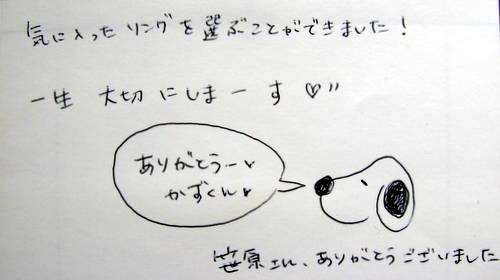 気に入ったリングを選ぶことができました！
一生 大切にしまーす♡〃
ありがとうー♥
かずくん♥
笹原さん、ありがとうございました